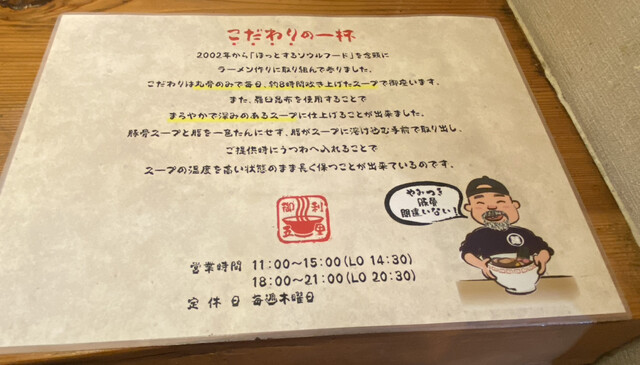 こだわりの一杯
2002年から「ほっとするソウルフード」を念頭に
ラーメン作りに取り組んで参りました。
こだわりは丸骨のみで毎日、約8時間炊き上げたスープで御座います。
また、羅臼昆布を使用することで
まろやかで深みのあるスープに仕上げることが出来ました。
豚骨スープと脂を一色たんにせず、脂がスープに溶け込む手前で取り出し、
ご提供時にうつわへ入れることで
スープの温度を高い状態のまま長く保つことが出来ているのです。
やみつき
豚骨
間違いない!
御利
五屋
営業時間 11:00～15:00(LO 14:30)
18:00～21:00(LO 20:30)
定休日 毎週木曜日